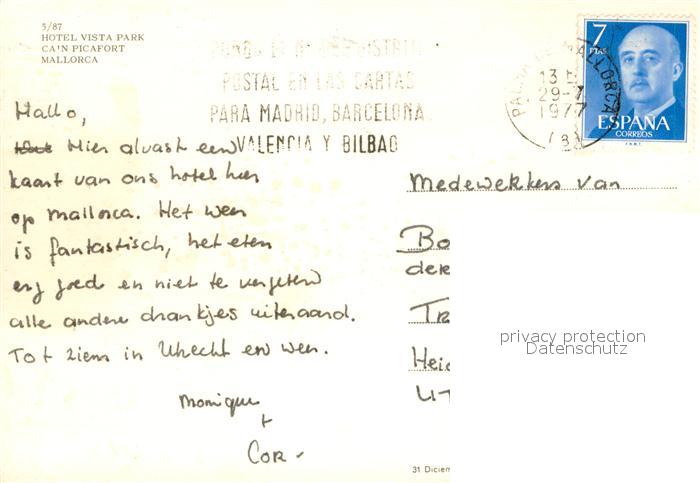 5/87
HOTEL VISTA PARK
CA'N PICAFORT
MALLORCA
PONGA EL Nº DEL DISTRITO
POSTAL EN LAS CARTAS
PARA MADRID, BARCELONA
VALENCIA Y BILBAO
PALMA DE MALLORCA
29-7
1977
7
PTAS
ESPAÑA
CORREOS
F.N.M.T.
Hallo,
Hier alvast een
kaart van ons hotel hier
op Mallorca. Het weer
is fantastisch, het eten
erg goed en niet te vergeten
alle andere drankjes uiteraard.
Tot ziens in Utrecht en weer.
Monique
+
Cor
Medewerkers van
Bo
der
Tr
Heid
UT
privacy protection
Datenschutz
31 Diciem